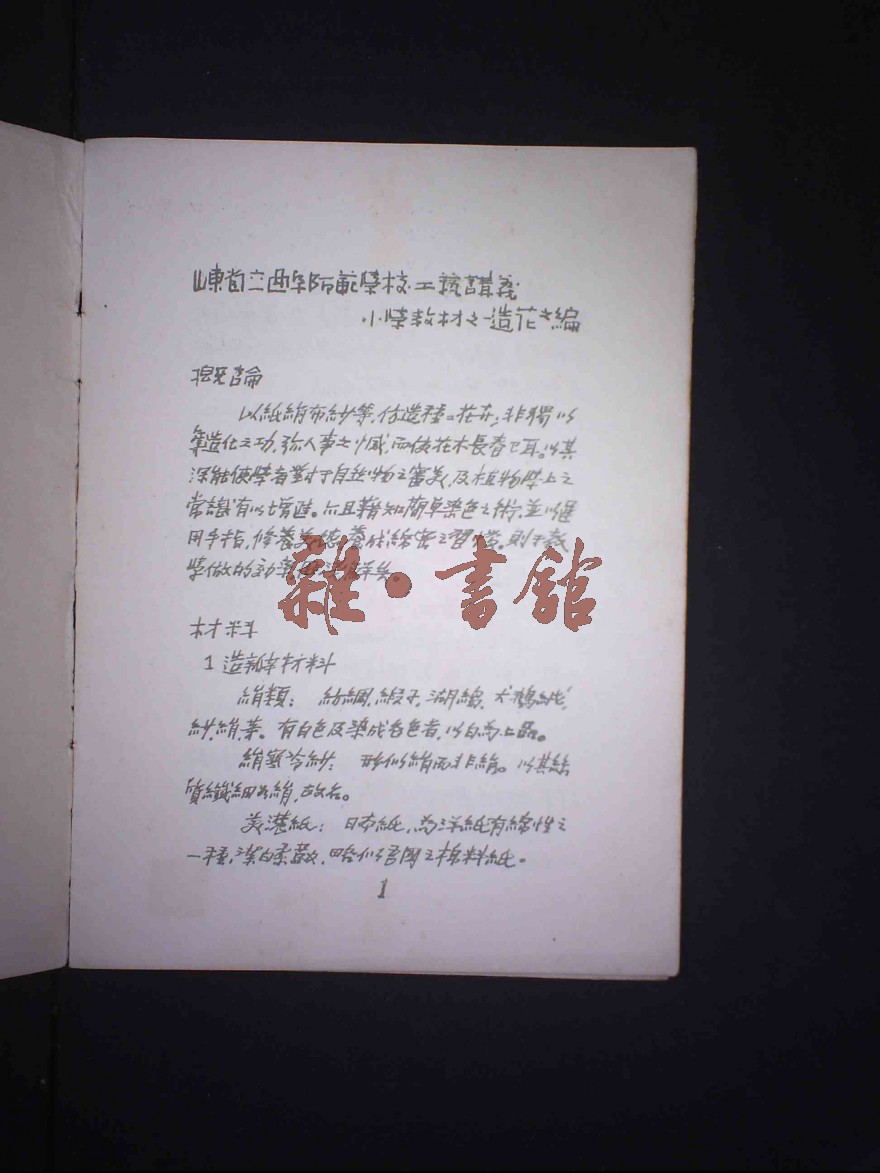 山東省立曲阜師範學校工藝講義
小學教材之一造花之編
概論
以紙絹布紗等,仿造種二花卉;非獨以
奪造化之功,弥人事之憾,而使花木長春已耳。以其
深能使學者對于自然物之審美,及植物學上之
常識有以增進。而且藉知簡單染色之術,並以運
用手指,修養美德,養成綿密之習慣,則于教
學做的
雜·書館
材料
1 造瓣材料
絹類: 紡綢,緞子,湖縐,天鵝絨,
紗,絹等。有白色及染成各色者,以白為上品。
絹寒冷紗: 形似絹而非絹。以其結
質纖細如絹,故名。
美濃紙: 日本紙,為洋紙有綿性之
一種,潔白柔嚴,略似吾國之棉料紙。
1